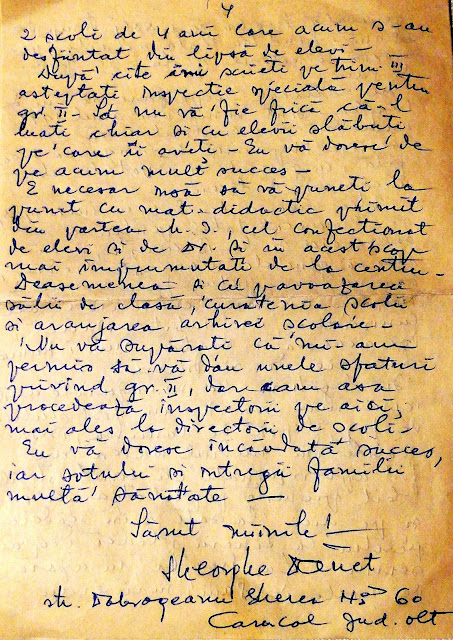 4
2 școli de 4 ani care acum s-au
desființat din lipsă de elevi -
După cîte îmi scrieți pe trim. III
așteptați inspecție specială pentru
gr. II - Să nu vă fie frică că-l
luați chiar și cu elevii slăbuți
pe care îi aveți - Eu vă doresc de
pe acum mult succes -
E necesar însă să vă puneți la
punct cu mat. didactic primit
din partea M. I., cel confecționat
de elevi și de Dv. și în acest scop
mai împrumutați de la centru -
Deasemenea și cu pavoazarea
sălii de clasă, curățenia școlii
și aranjarea arhivei școlare -
Nu vă supărați că mi-am
permis să vă dau unele sfaturi
privind gr. II, dar cam așa
procedează inspectorii pe aici,
mai ales la directorii de școli -
Eu vă doresc încăodată succes,
iar soțului și întregii familii
multă sănătate -
Sărut mîinile! -
Gheorghe
str. Dobrogeanu Gherea No 60
Caracal Jud. Olt